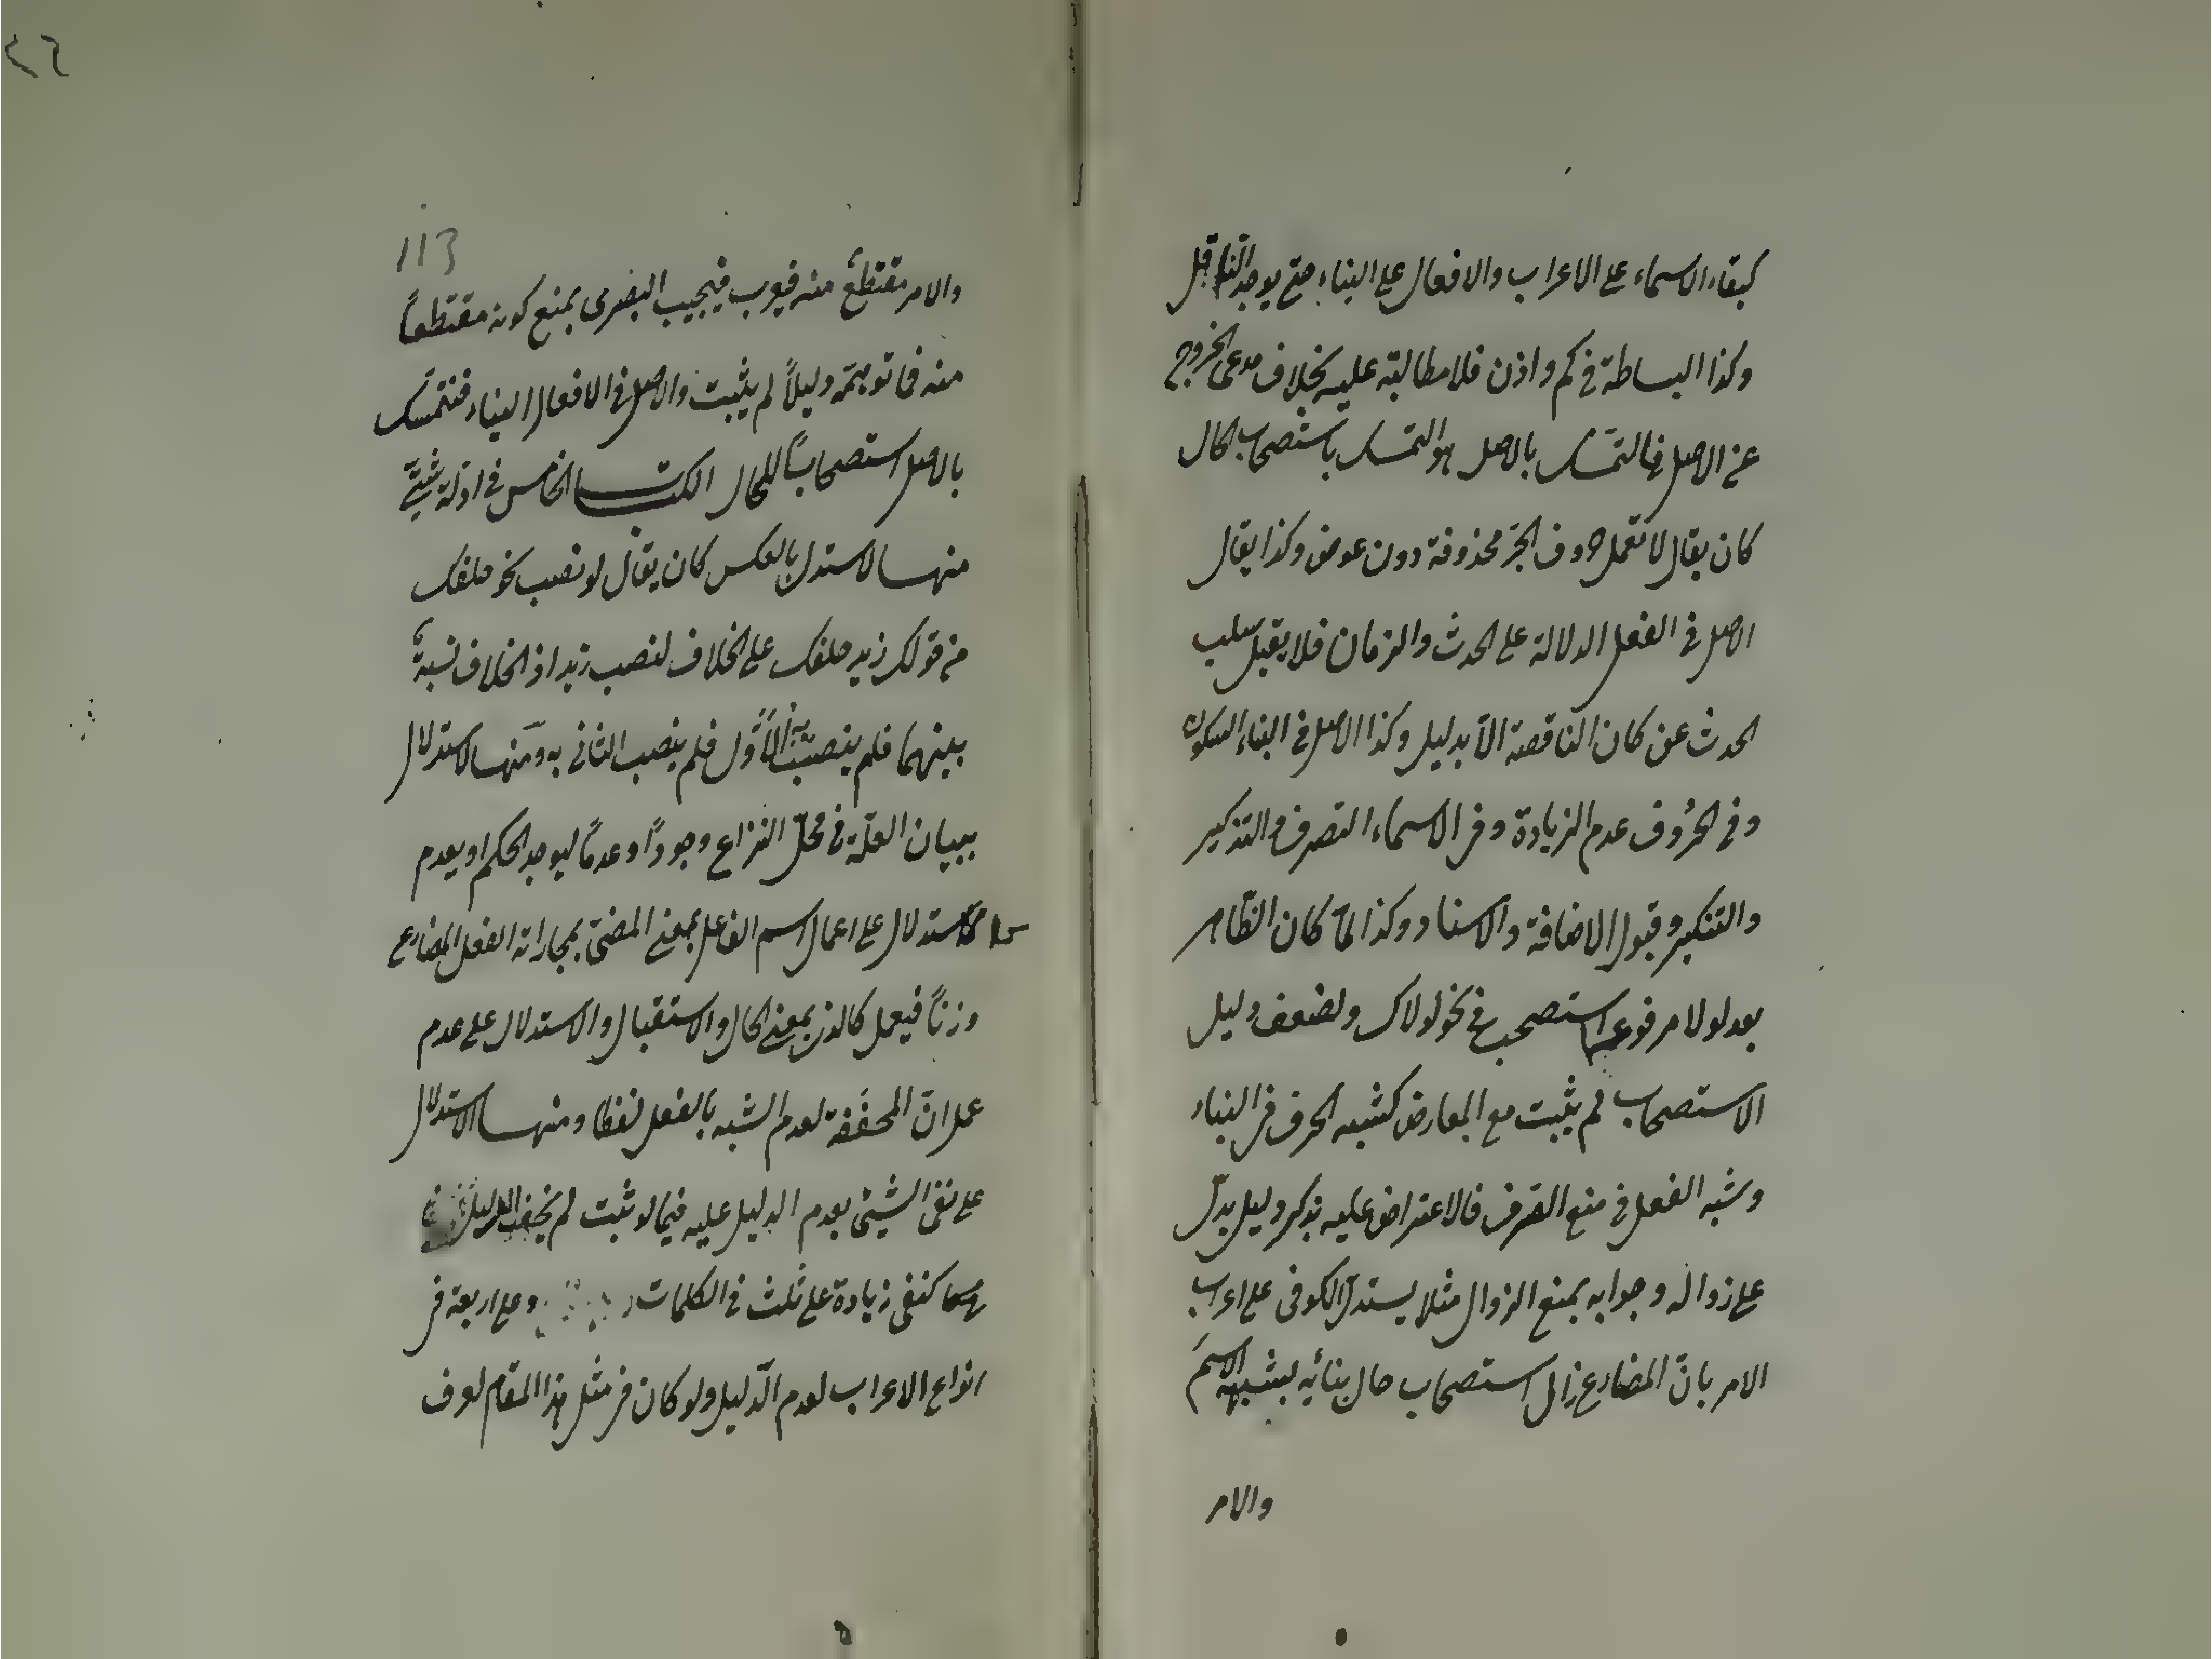 كبقاء الاسماء على الاعراب والافعال على البناء حتى يوجد الناقل
وكذا البساطة فى كم واذن فلا مطالبة عليه بخلاف مدعى الخروج
عن الاصل فالتمسك بالاصل هو التمسك باستصحاب الحال
كان يقال لا تعمل حروف الجرّ محذوفة دون عوض وكذا يقال
الاصل فى الفعل الدلالة على الحدث والزمان فلا يقبل سلب
الحدث عن كان الناقصة الّا بدليل وكذا الاصل فى البناء السكون
وفى الحرُوف عدم الزيادة وفى الاسماء التصرف والتذكير
والتنكير وقبول الاضافة والاسناد وكذا لمّا كان الظّاهر
بعد لولا مرفوعا استصحب فى نحو لولاك ولضعف دليل
الاستصحاب لم يثبت مع المعارض كشبه الحرف فى البناء
وشبه الفعل فى منع الصرف فالاعتراض عليه بذكر دليل يدلّ
على زواله وجوابه بمنع الزوال مثلا يستدلّ الكوفى على اعراب
الامر بانّ المضارع زال استصحاب حال بنائه لشبهه الاسمَ
والامر
113
والامر مقتطعٌ منه فيعرب فيجيب البصرى بمنع كونه مقتطعاً
منه فما توهمّه دليلاً لم يثبت والاصل فى الافعال البناء فنتمسّك
بالاصل استصحاباً للحال الكتاب الخامس فى ادلّة شتّى
منها الاستدلال بالعكس كان يقال لو نصب نحو خلفك
من قولك زيد خلفك على الخلاف لنصب زيد اذ الخلاف نسبةٌ
بينهما فلم ينصب الاوّل فلم ينصب الثانى به ومنها الاستدلال
ببيان العلّة فى محلّ النزاع وجوداً وعدماً ليوجد الحكم او يعدم
كالاستدلال على اعمال اسم الفاعل بمعنى المضىّ بمجاراته الفعل المضارع
وزناً فيعمل كالذى بمعنى الحال والاستقبال والاستدلال على عدم
عمل انّ المخففة لعدم الشبه بالفعل لفظا ومنها الاستدلال
على نفى الشيئ بعدم الدليل عليه فيما لو ثبت لم يخف الدليل
كنفى زيادة على ثلث فى الكلمات وعلى اربعة فى
انواع الاعراب لعدم الدّليل ولو كان فى مثل هذا المقام لعرف